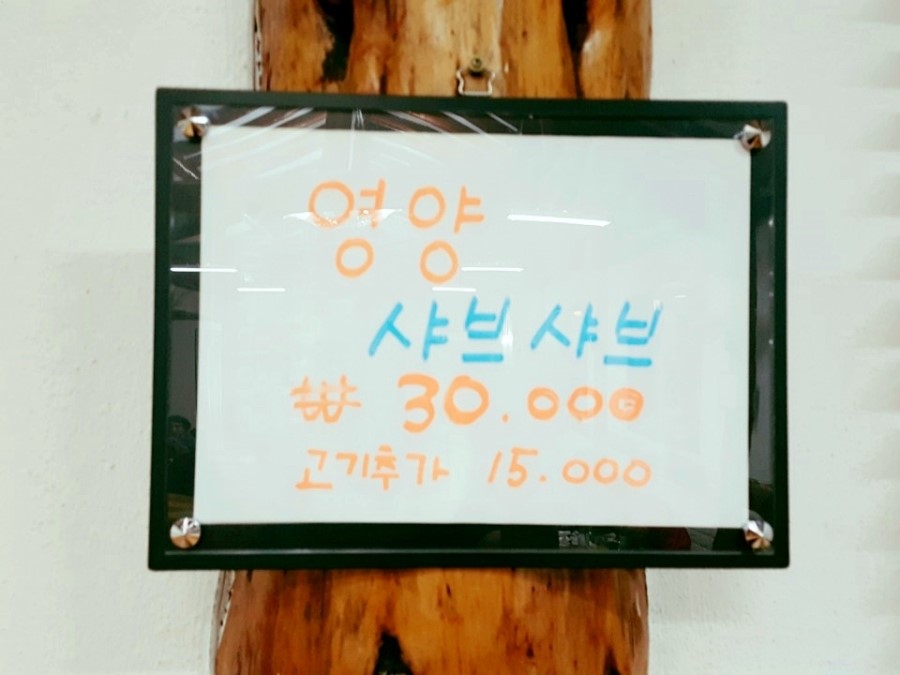 영양
샤브샤브
₩ 30.000
고기추가 15.000